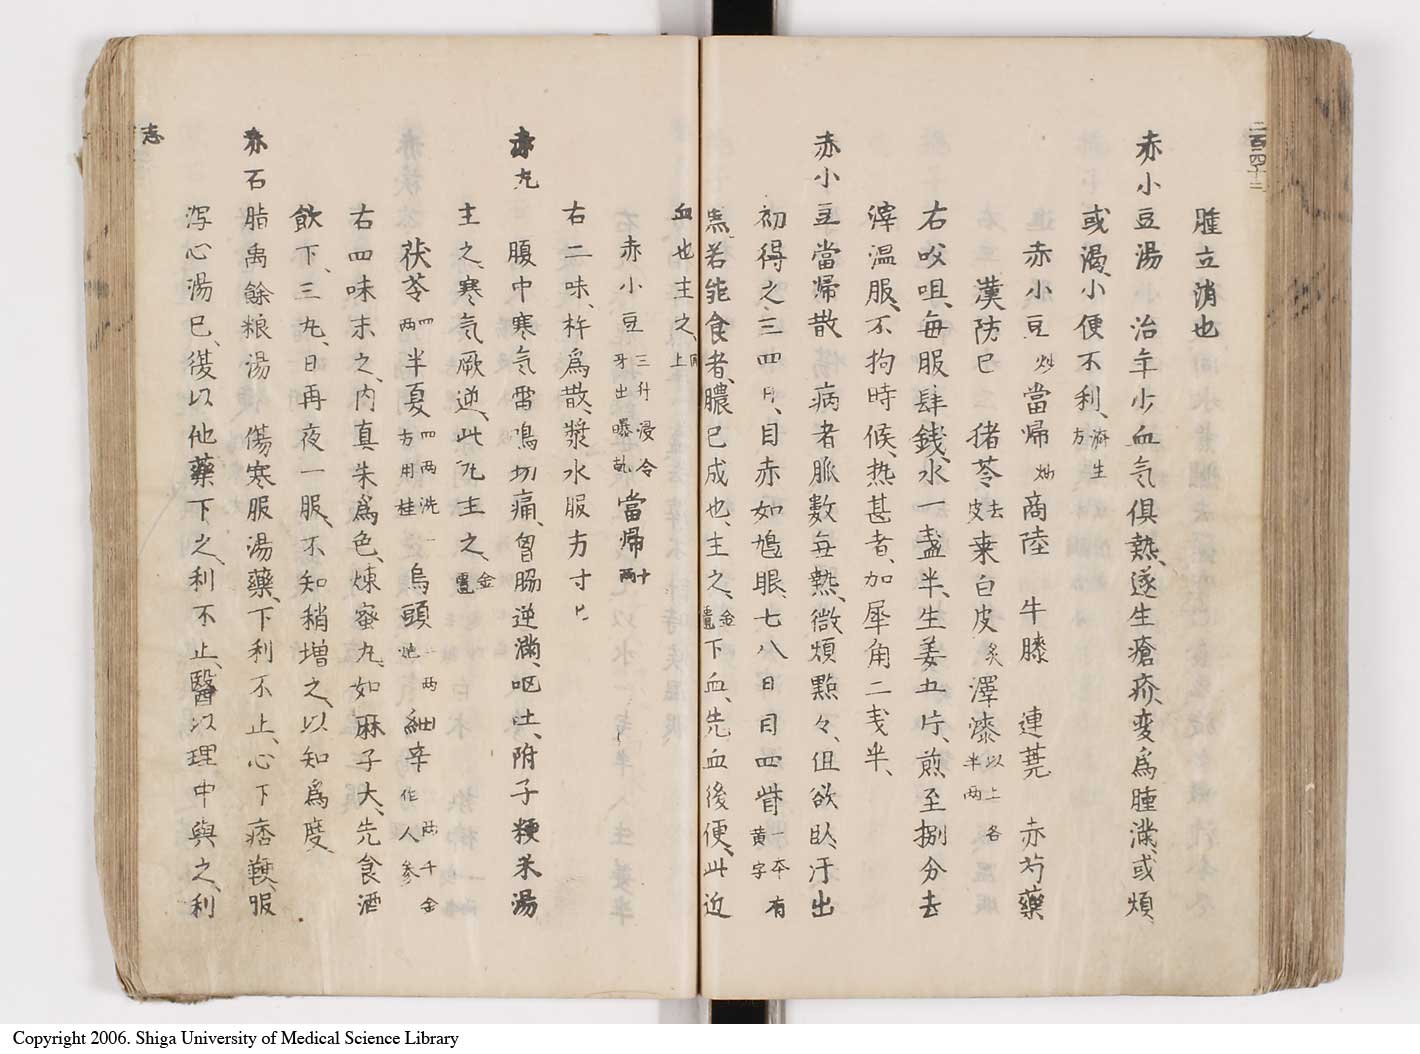 二百四十三
腫立消也
赤小豆湯 治年少血気俱熱、遂生瘡疥、変為腫満、或煩、
或渇、小便不利、済生方
赤小豆炒 當帰炒 商陸 牛膝 連莞 赤芍藥
漢防已 猪苓去皮 桒白皮炙 澤漆以上各半両
右㕮咀、毎服肆銭、水一盞半、生姜五片、煎至捌分去
滓温服、不拘時候、熱甚者、加犀角二戔半、
赤小豆當帰散 病者脈数毎熱、微煩黙々、但欲臥、汗出
初得之、三四日、目赤如鳩眼、七八日目四眥一本有黄字
黒若能食者、膿已成也、主之、金匱 下血、先血後便、此近
血也主之、同上
赤小豆三升浸令牙出曝乾 當帰十両
右二味、杵為散、漿水服方寸匕
赤丸 腹中寒気雷鳴切痛、胷脇逆満、呕吐、附子粳米湯
主之、寒気厥逆、此丸主之、金匱
茯苓四両 半夏四両洗一方用桂 烏頭二両炮 細辛一両千金作人参
右四味末之、内真朱為色、煉蜜丸、如麻子大、先食酒
飲下、三丸、日再夜一服、不知稍増之、以知為度、
赤石脂禹餘粮湯 傷寒服湯藥、下利不止、心下痞鞕、服
瀉心湯已、復以他藥下之、利不止、醫以理中與之、利
志
Copyright 2006. Shiga University of Medical Science Library